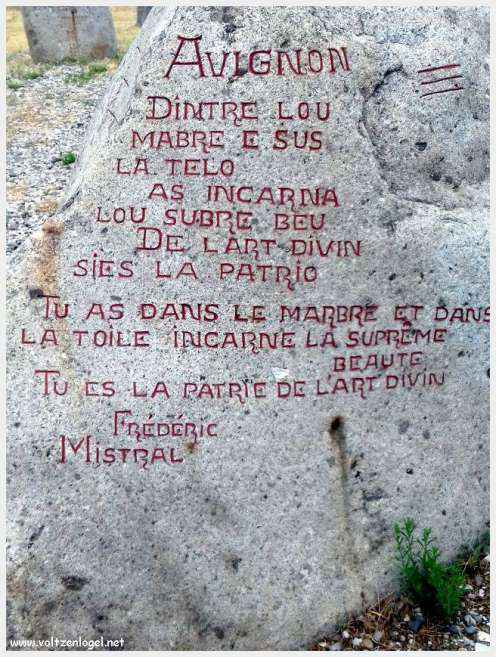 AVIGNON
DINTRE LOU
MABRE E SUS
LA TELO
AS INCARNA
LOU SUBRE BEU
DE L'ART DIVIN
SIES LA PATRIO
TU AS DANS LE MARBRE ET DANS
LA TOILE INCARNE LA SUPRÊME
BEAUTE
TU ES LA PATRIE DE L'ART DIVIN
FRÉDÉRIC
MISTRAL
www.voltzenlogel.net